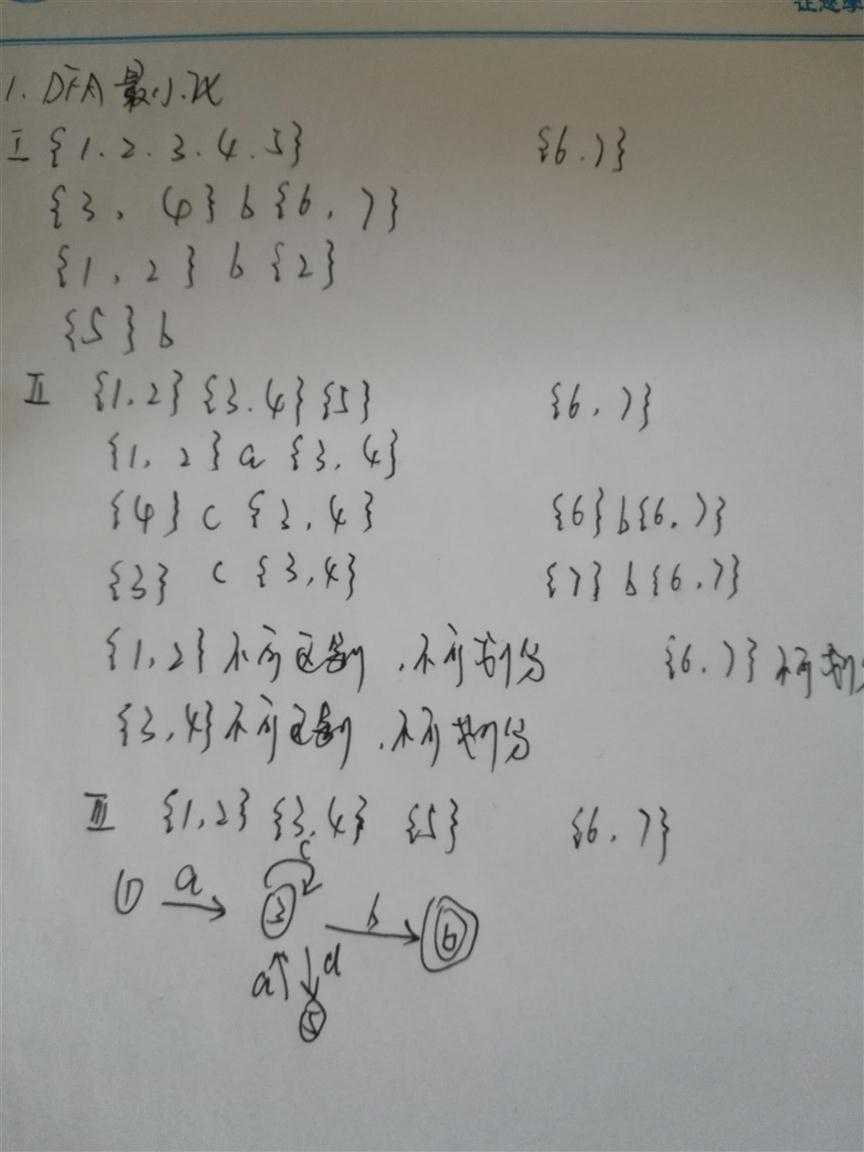 1. DFA 最小化
I {1.2.3.4.5} {6.7}
{3, 4} b {6, 7}
{1, 2} b {2}
{5} b
II {1.2} {3.4} {5} {6, 7}
{1, 2} a {3, 4}
{4} c {3, 4} {6} b {6, 7}
{3} c {3,4} {7} b {6,7}
{1,2} 不可区别,不可划分 {6, 7} 不可划分
{3,4} 不可区别,不可划分
III {1,2} {3,4} {5} {6, 7}
c
1 a 3 b 6
a d
5